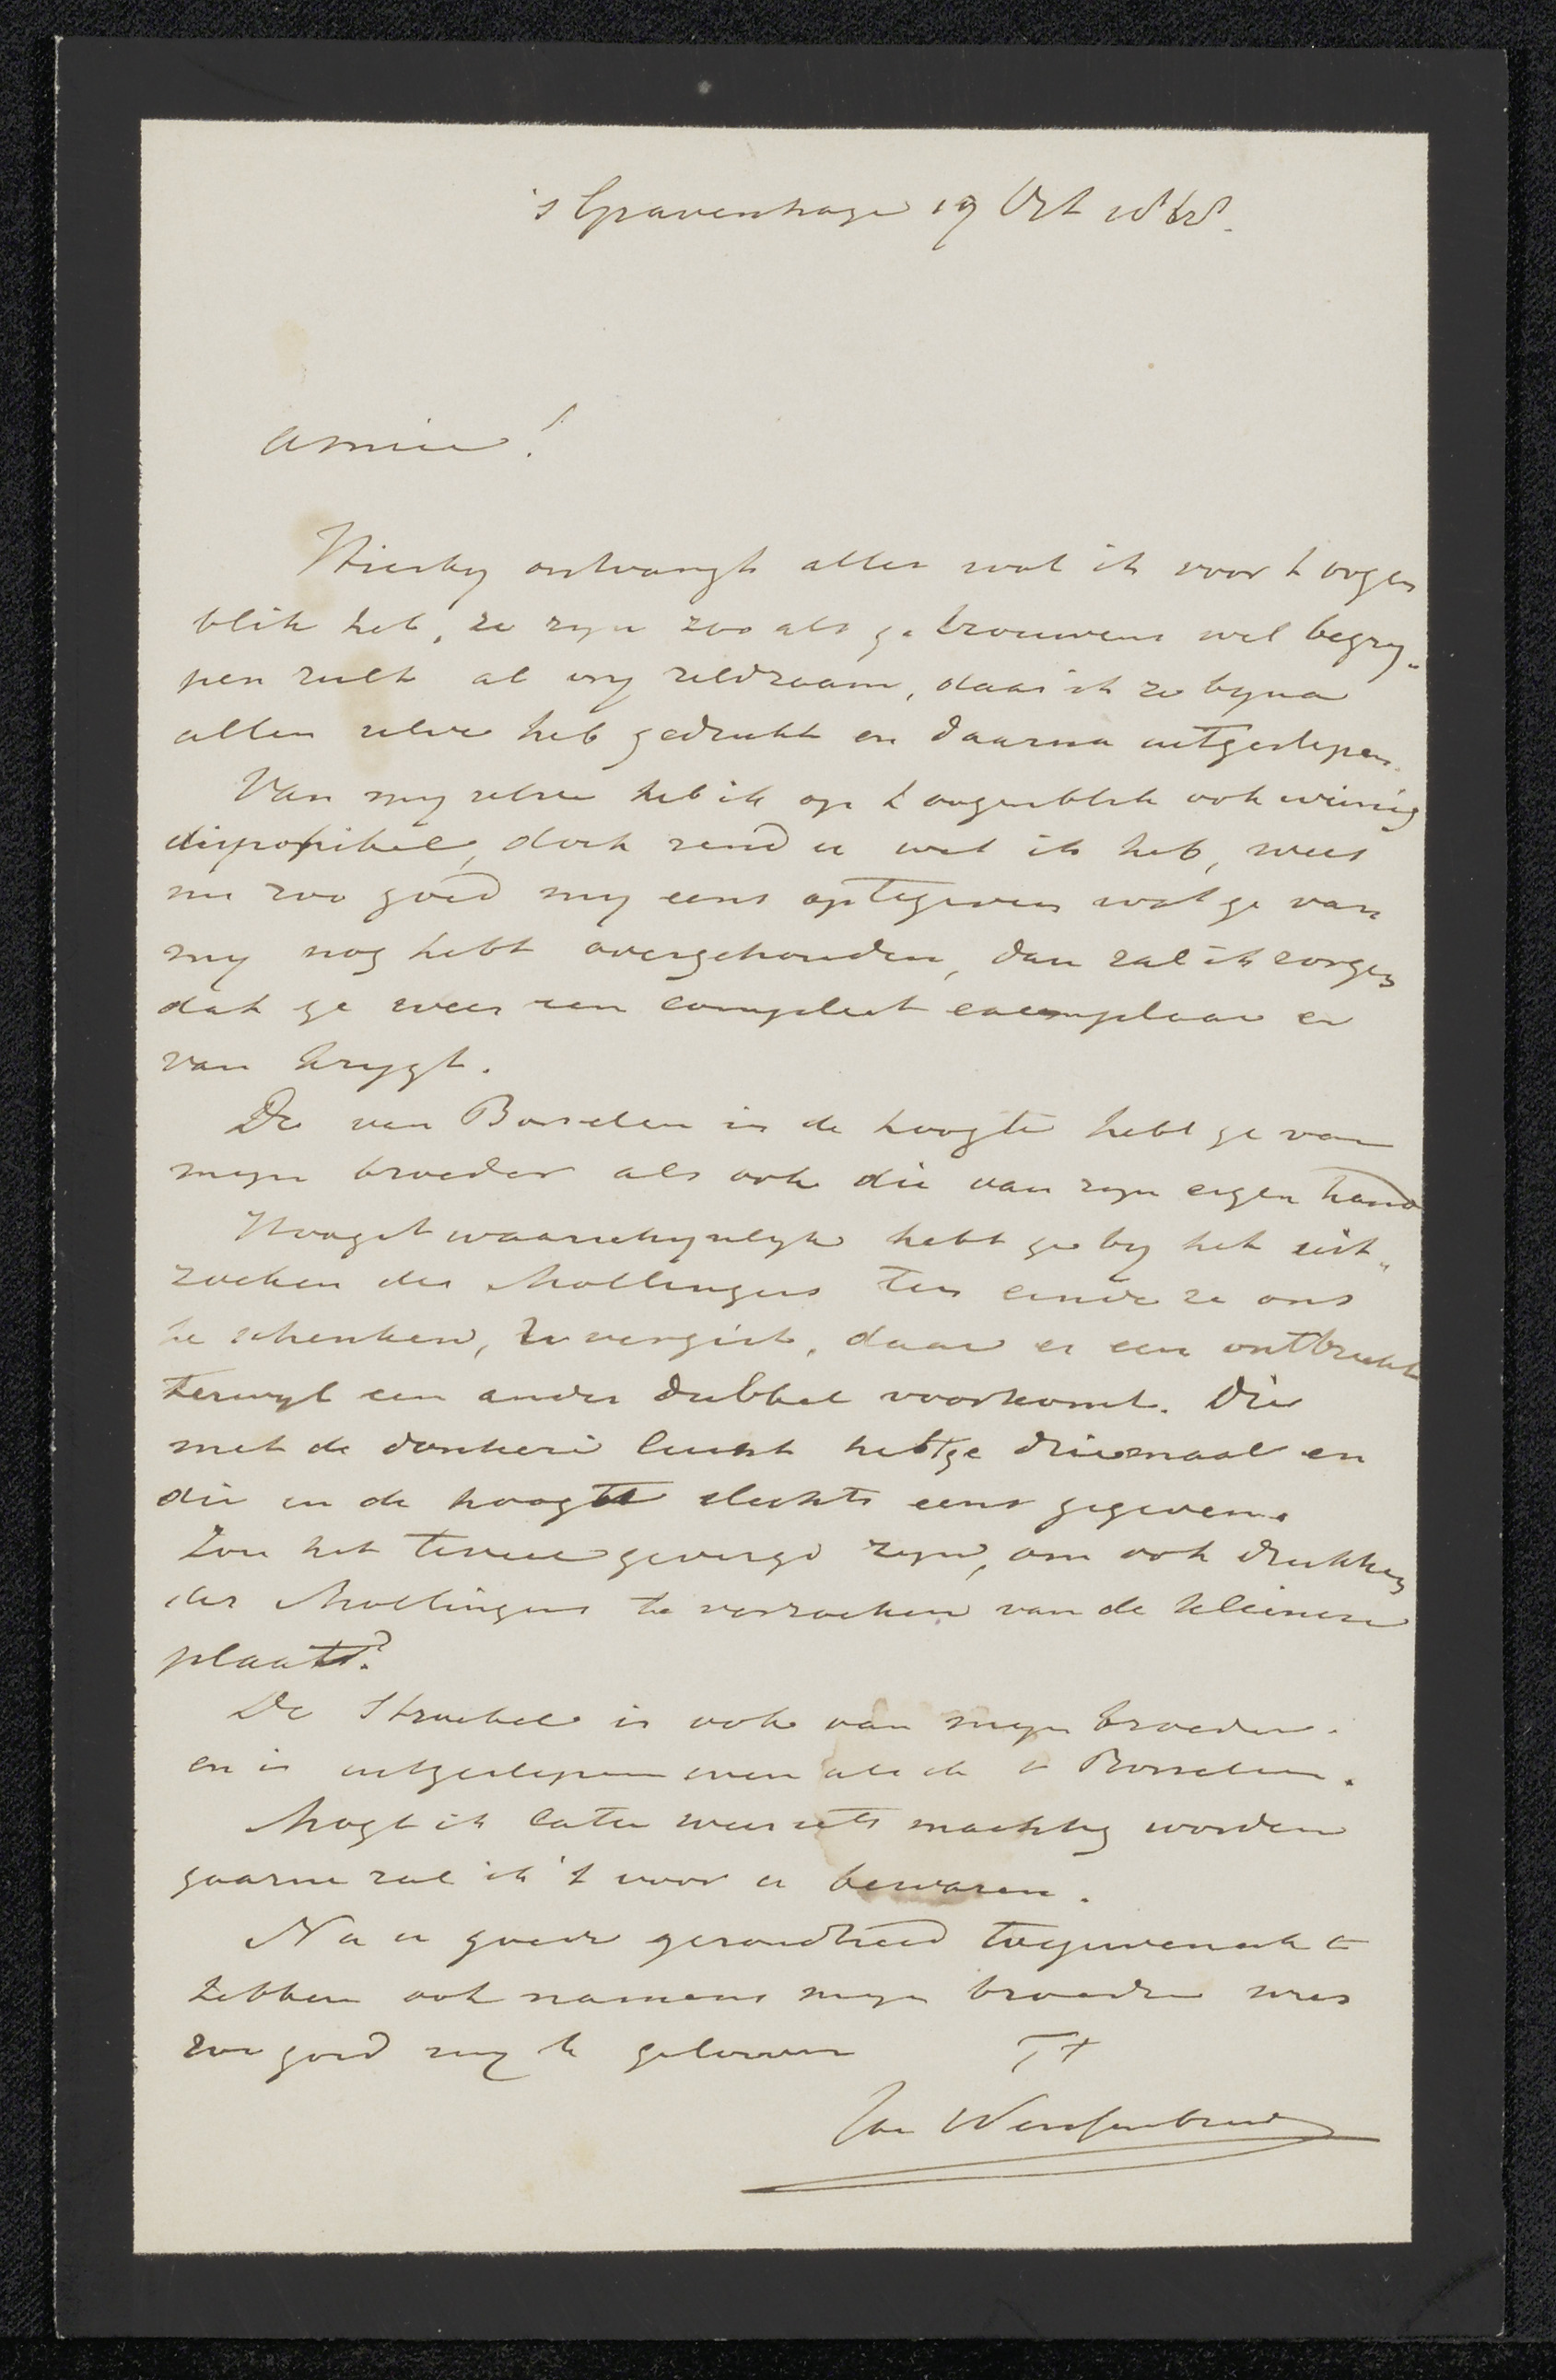 's Gravenhage 19 Oct 1868.
Amice!
Hierby ontvangt alles wat ik voor t oogen
blik heb, ze zyn zoo als ge trouwens wel begry„
pen zult al vry zeldzaam, daar ik ze byna
allen zelve heb gedrukt en daarna uitgeslepen.
Van my zelve heb ik op t oogenblik ook weinig
disponibel, doch zend u wat ik heb, wees
nu zoo goed my eens optegeven wat ge van
my nog hebt overgehouden, dan zal ik zorgen
dat ge weer een compleet exemplaar er
van krygt.
De van Borselen in de hoogte hebt ge van
myn broeder als ook die van zyn eigen hand
Hoogst waarschynlyk hebt ge by het uit„
zoeken der Mollingers ten einde ze ons
te schenken, U vergist, daar er een ontbreekt
terwyl een ander dubbel voorkomt. Die
met de donkere lucht hebt ge driemaal en
die in de hoogte slechts eens gegeven.
Zou het teveel gevergd zyn, om ook drukken
der Mollingers te verzoeken van de kleinere
plaat?
De Stroebel is ook van myn broeder.
en is uitgeslepen even als de v Borselen.
Mogt ik later weer iets machtig worden
gaarne zal ik 't voor u bewaren.
Na u goede gezondheid toegewenscht te
hebben ook namens myn broeder wees
zoo goed my te gelooven TT
Jan Weissenbruch